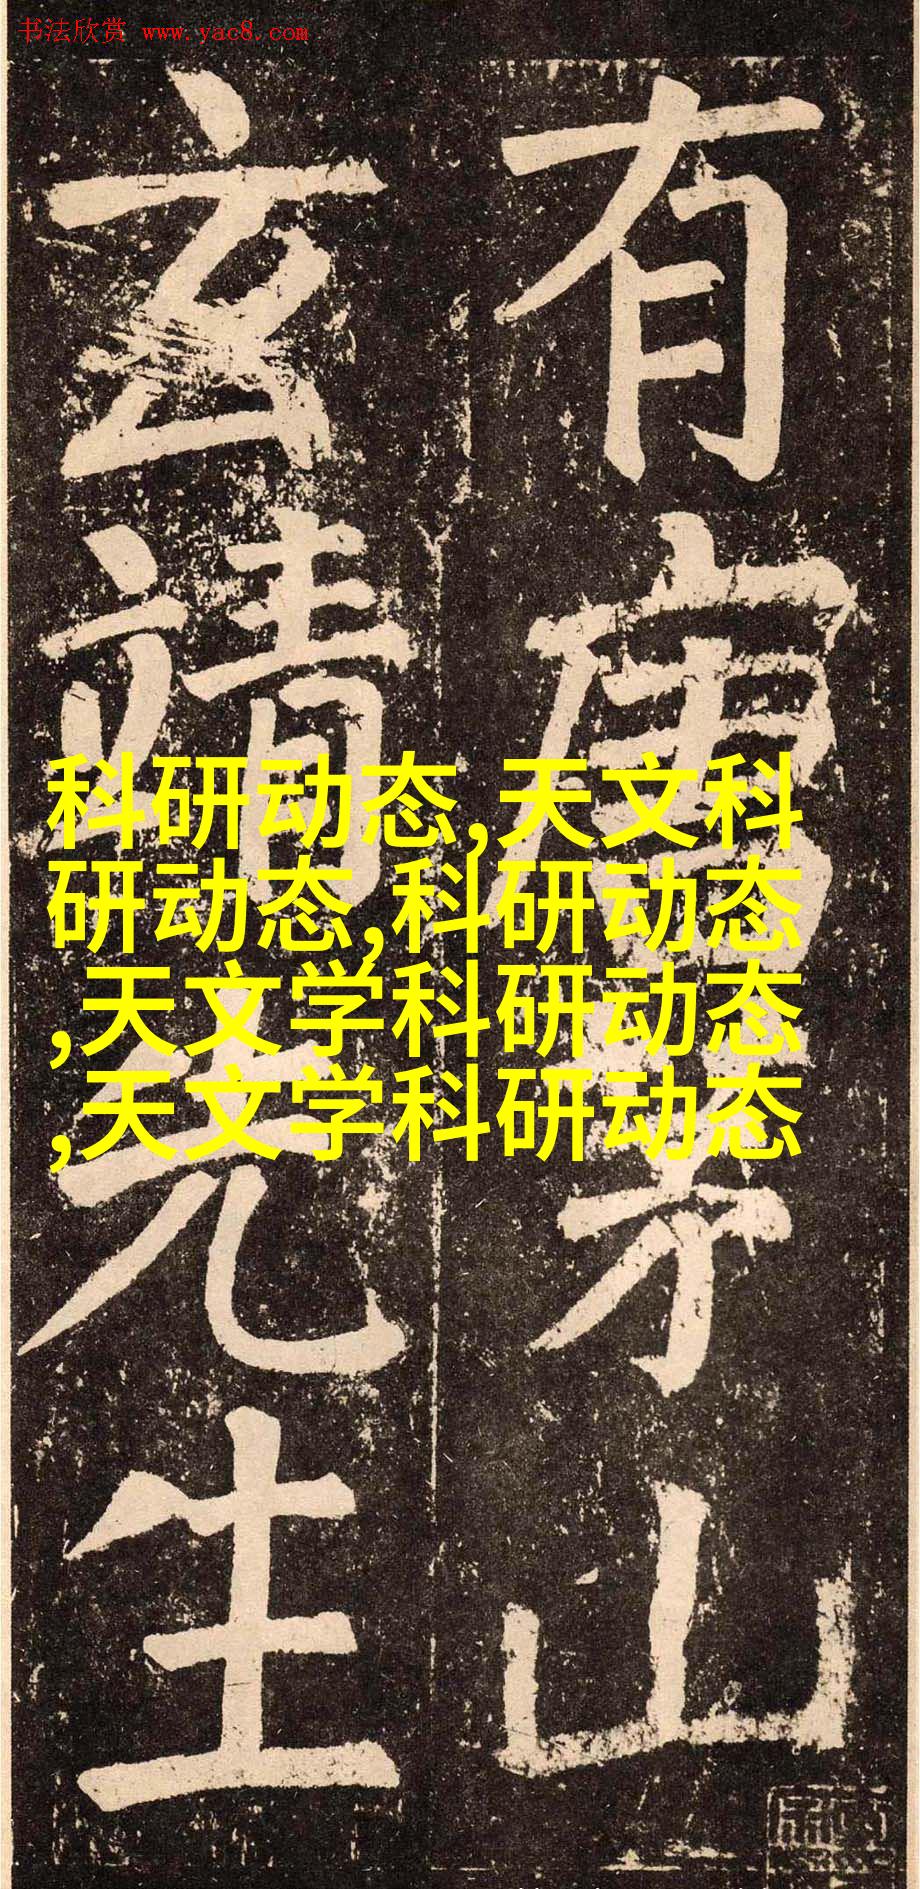 书法欣赏 www.yac8.com
有唐茅山
玄靖先生
科研动态,天文科
研动态,科研动态
,天文学科研动态
,天文学科研动态